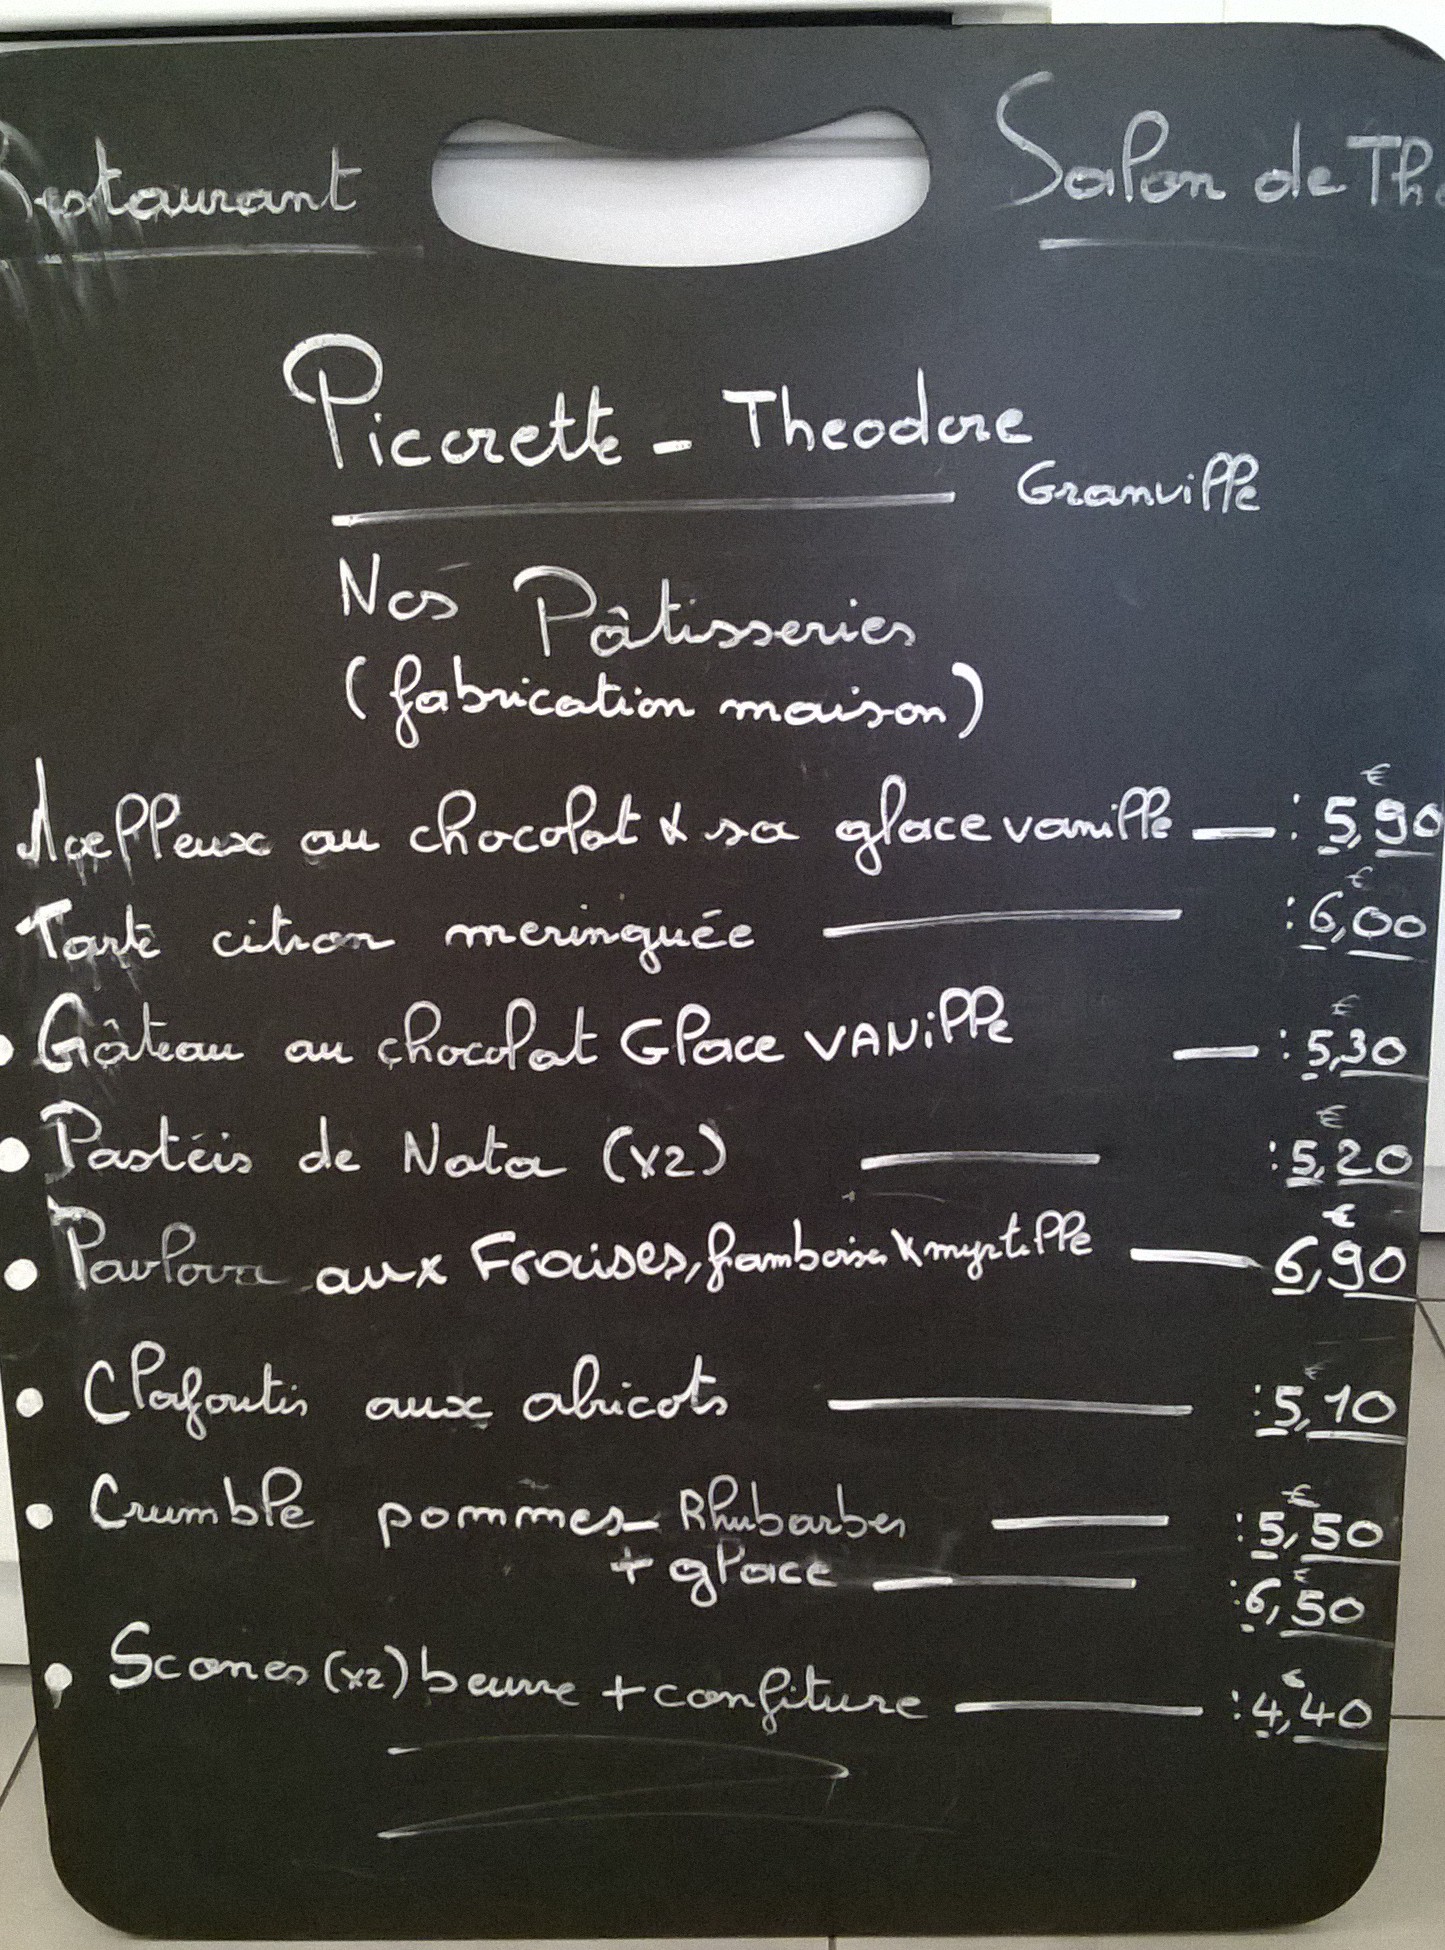 Restaurant
Salon de Thé
Picorette - Theodore
Granville
Nos Pâtisseries
(fabrication maison)
Moelleux au chocolat & sa glace vanille — : 5,90 €
Tarte citron meringuée — : 6,00 €
• Gâteau au chocolat Glace VANille — : 5,30 €
• Pastéis de Nata (x2) — : 5,20 €
• Pavlova aux Fraises, framboises & myrtille — 6,90 €
• Clafoutis aux abricots — : 5,10 €
• Crumble pommes - Rhubarbes — : 5,50 €
+ glace — : 6,50 €
• Scones (x2) beurre + confiture — : 4,40 €